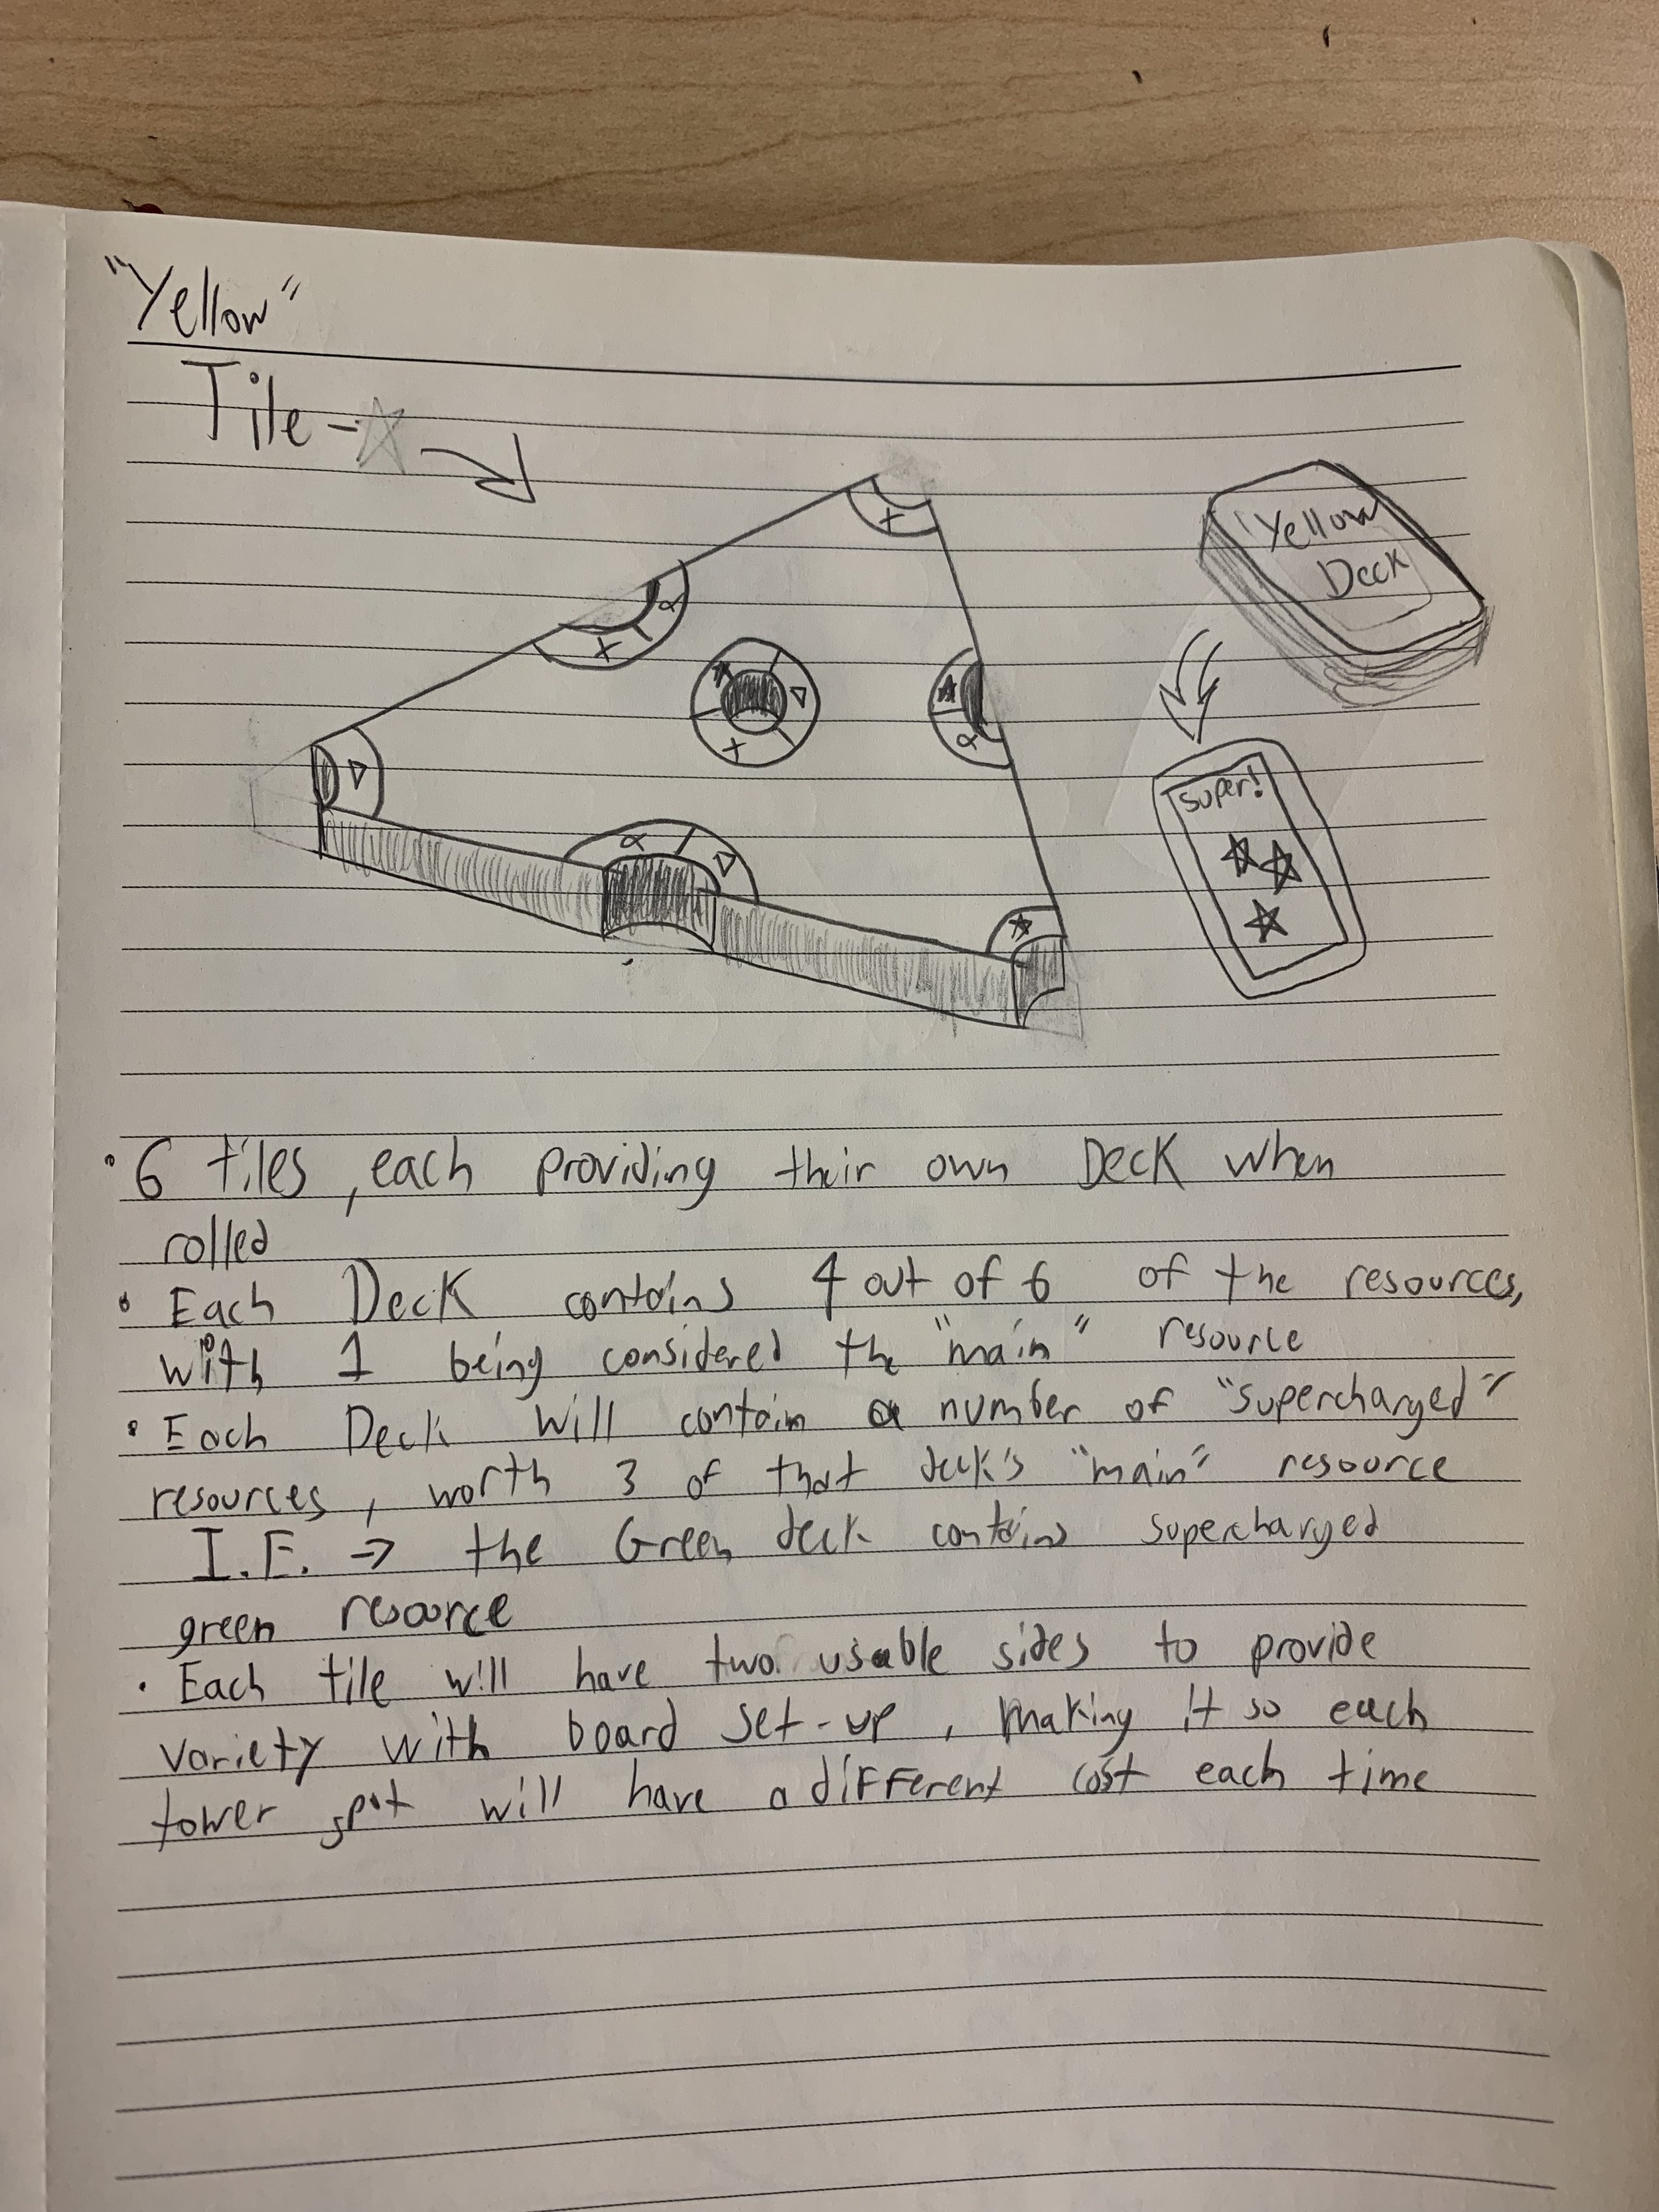 "Yellow"
Tile - ☆
Yellow
Deck
Super!
• 6 tiles, each providing their own Deck when
rolled
• Each Deck contains 4 out of 6 of the resources,
with 1 being considered the "main" resource
• Each Deck will contain a number of "supercharged"
resources, worth 3 of that deck's "main" resource
I.E. → the Green deck contains supercharged
green resource
• Each tile will have two usable sides to provide
variety with board set-up, making it so each
tower spot will have a different cost each time